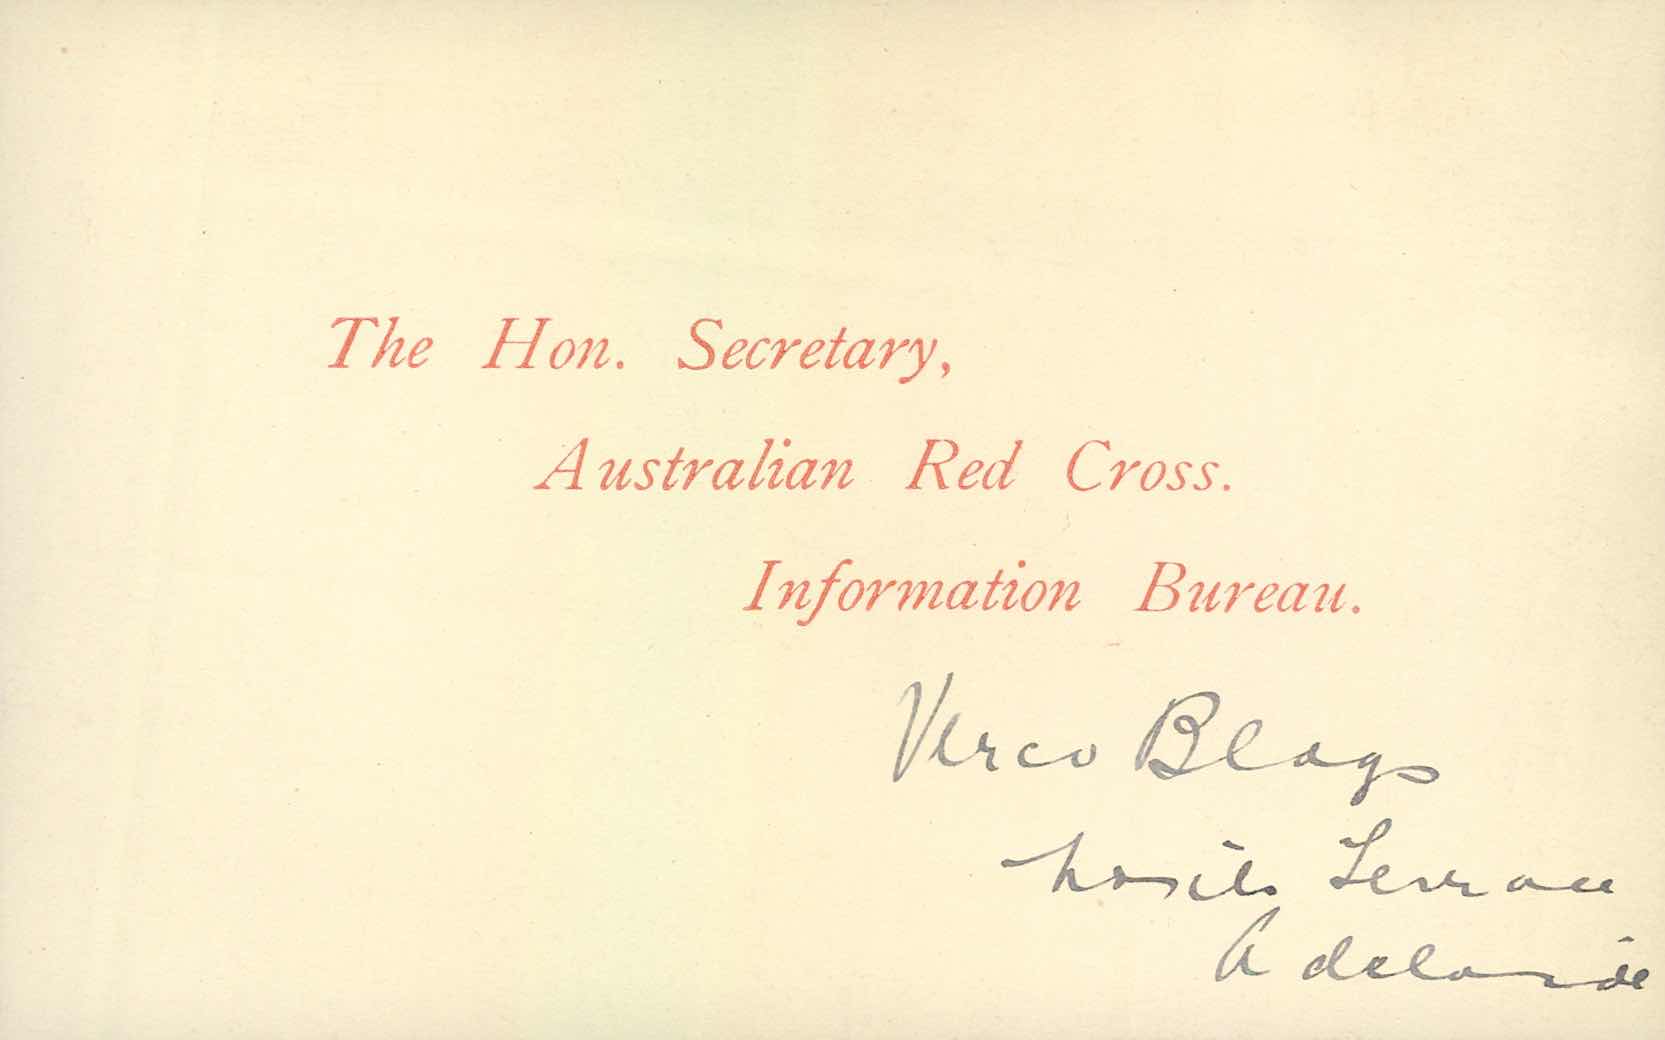 The Hon. Secretary,
Australian Red Cross.
Information Bureau.
Verco Bldgs
North Terrace
Adelaide